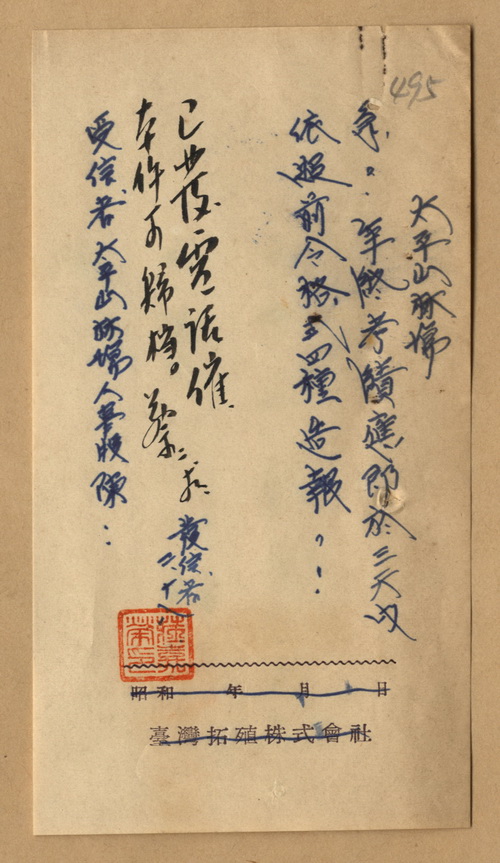 495
太平山林場
急。年終考績應即於三天內
依照前令格式四種造報，!
已發電話催
本件可歸檔。蔡二.
發信者
二.十八
受信者太平山林場人事股陳:
昭和 年 月 日
臺灣拓殖株式會社